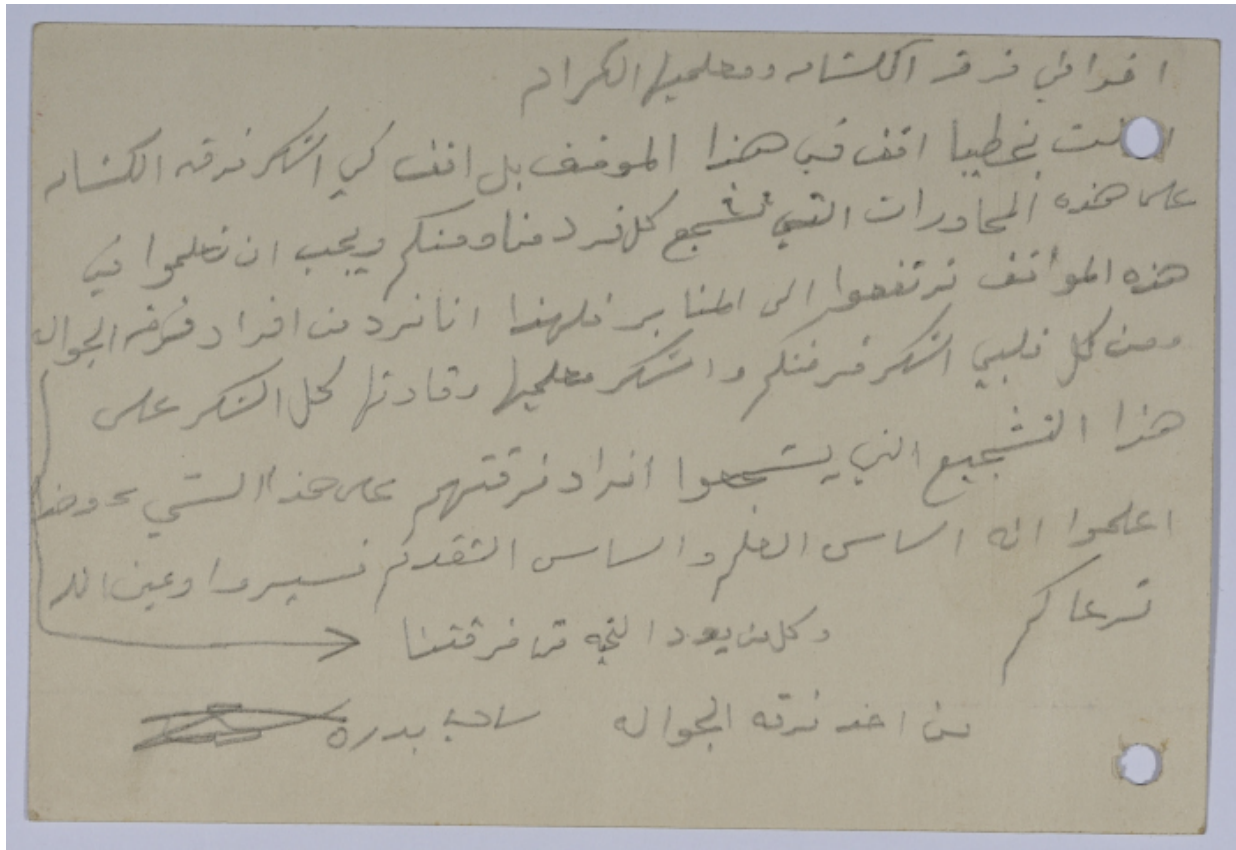 اخواني فرقة الكشافه ومعلميها الكرام
لست خطيبا اقف في هذا الموقف بل اقف كي اشكر فرقه الكشافه
على هذه المحاورات التي تشجع كل فرد منا ومنكم ويجب ان تعلموا في
هذه المواقف ترتفعوا الى المنابر فلهذا انا فرد من افراد فرقه الجواله
ومن كل قلبي اشكر فرقتكم واشكر معلميها وقادتها كل الشكر على
هذا التشجيع الذي يشجعوا افراد فرقتهم على هذا الشي
اعلموا انه اساس العلم واساس التقدم فسيروا وعين الله
ترعاكم
وكل من يود من فرقتنا
من احد فرقه الجواله بدره